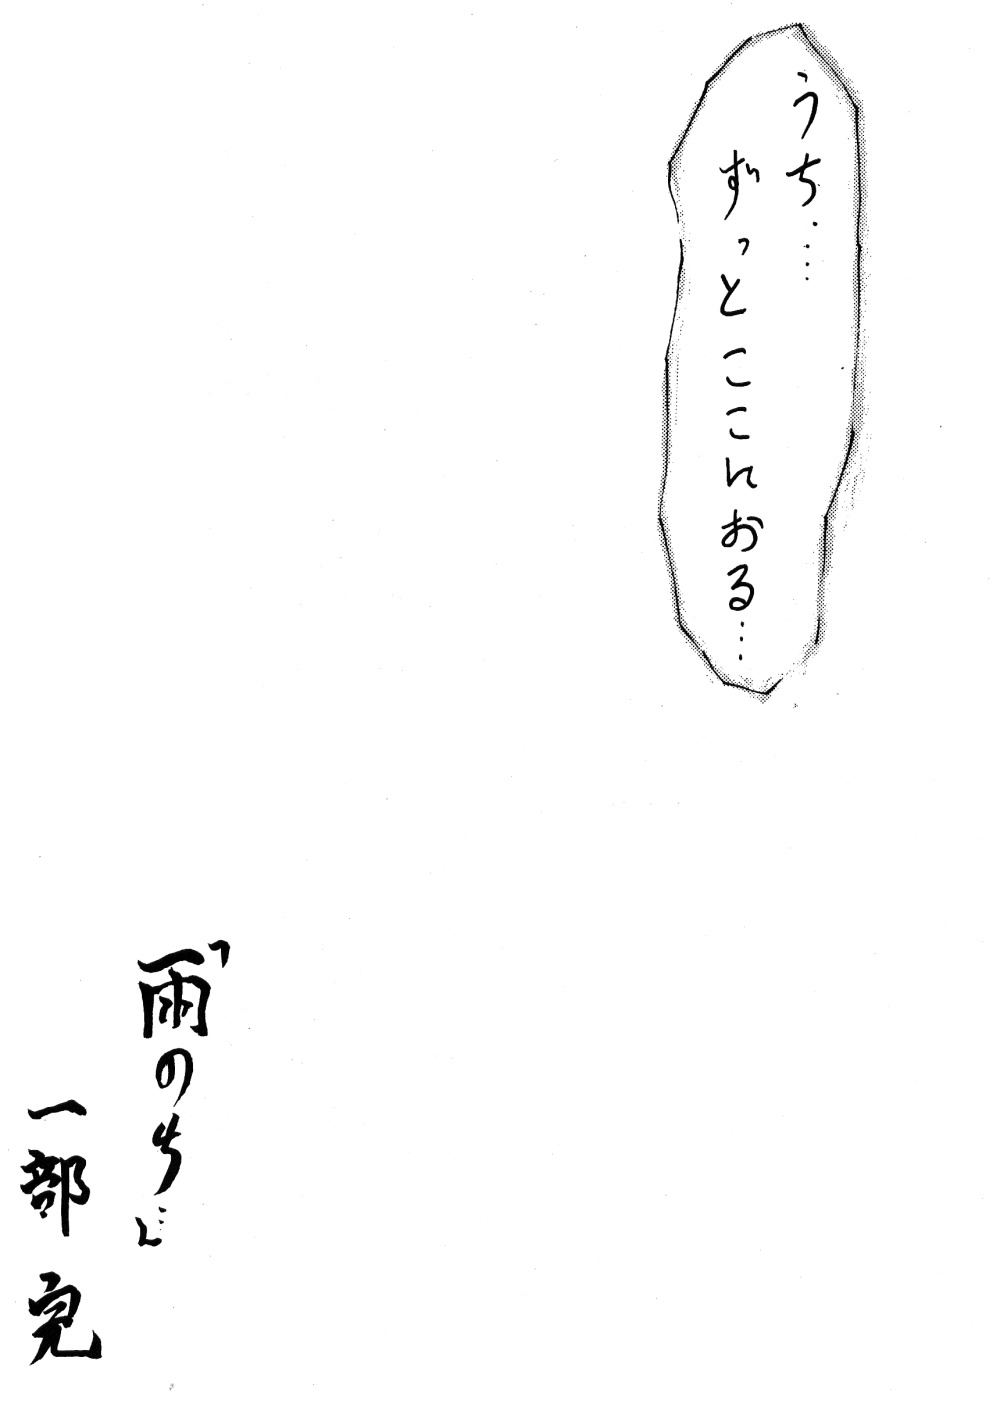 うち‥‥
ずっとここにおる…
「雨のち…」
一部 完